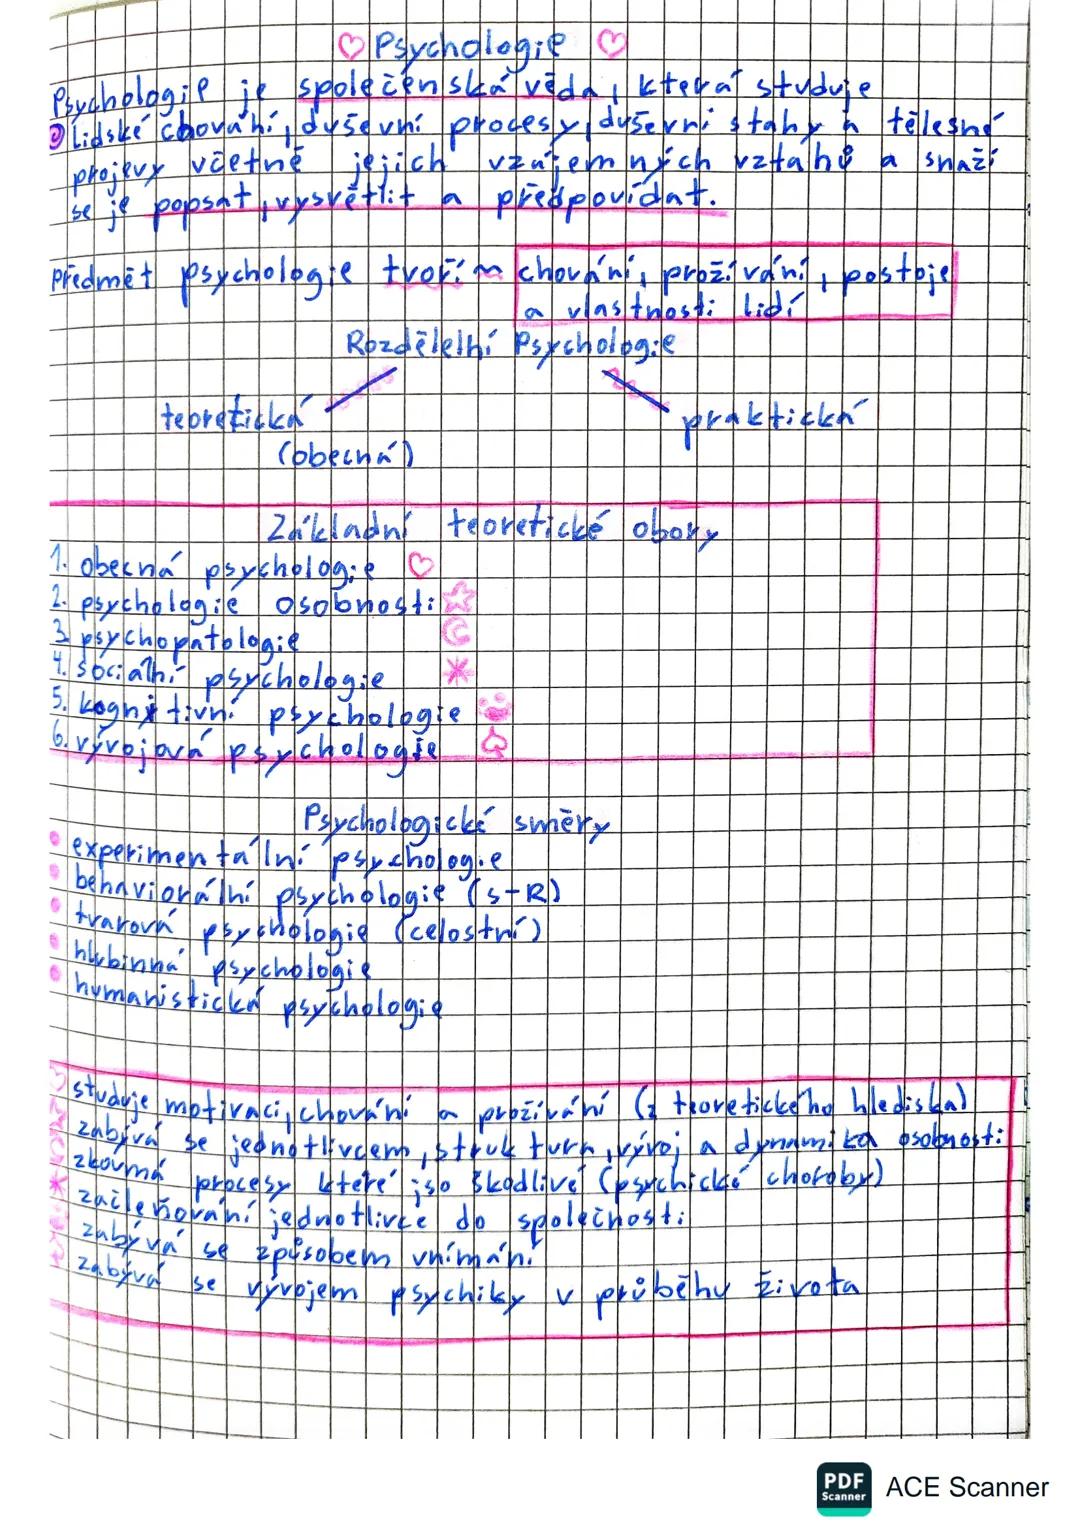 Psychologie
Psychologie je společenská věda, která studuje
lidské chování, duševní procesy, duševní stahy a tělesné
projevy včetně jejich vzájemných vztahů a snaží
se je popsat, vysvětlit a předpovídat.
Předmět psychologie tvoří chování, prožívání, postoje
a vlastnosti lidí
Rozdělelní Psychologie
teoretická praktická
(obecná)
Základní teoretické obory
1. obecná psychologie
2. psychologie osobnosti
3. psychopatologie
4. sociální psychologie
5. kognitivní psychologie
6. vývojová psychologie
Psychologické směry
experimentální psychologie
behaviorální psychologie (S-R)
tvarová psychologie (celostní)
hlubinná psychologie
humanistická psychologie
studuje motivaci, chování a prožívání (z teoretického hlediska)
zabývá se jednotlivcem, struktura, vývoj a dynamika osobnosti
zkoumá procesy které jso škodlivé (psychické choroby)
začleňování jednotlivce do společnosti
zabývá se způsobem vnímání
zabývá se vývojem psychiky v průběhu života
PDF
Scanner
ACE Scanner